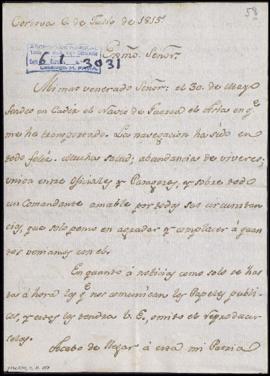 Corova 6 de Junio de 1815.
58
6 1 3031
Exmo. Señor.
Mi mas venerado Señor: el 30. de May
fondeó en Cadiz el Navio de Guerra el
me ha transportado. La navegacion ha sido en
todo feliz. Mucha salud; abundancia de viveres;
union entre Oficiales y Pasageros, y sobre todo
un Comandante amable por todas sus circunstan
cias, que solo penso en agradar y complacer á quan
tos veniamos con el.
En quanto á noticias como solo se has
ta ahora las q.e nos comunican los Papeles publi
cos, y estos los tendra V. E. omito el reproducir
selas.
Acabo de llegar á esta mi Patria